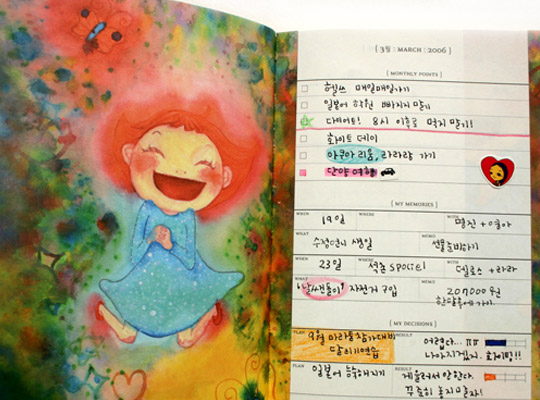 { 3월 : MARCH : 2006 }
[ MONTHLY POINTS ]
헬쓰 매일매일가기
일본어 학원 빠지지 말기
다이어트! 8시 이후로 먹지 말기!
화이트 데이
아쿠아 리움, 라라랑 가기
단양 여행
[ MY MEMORIES ]
WHEN 19일 WHERE WITH 명진 +
WHAT 수정언니 생일 MEMO 선물준비하기
WHEN 23일 WHERE 속초 WITH + 라라
WHAT 자전거 구입 MEMO 207000 원
[ MY DECISIONS ]
PLAN 9월 마라톤 참가대비 RESULT 어렵다... ㅠㅠ
달리기연습 나아지겠지. 화이팅!!
PLAN 일본어 능숙해지기 RESULT 게을러서 안한다.
꾸준히 놓지 말자!